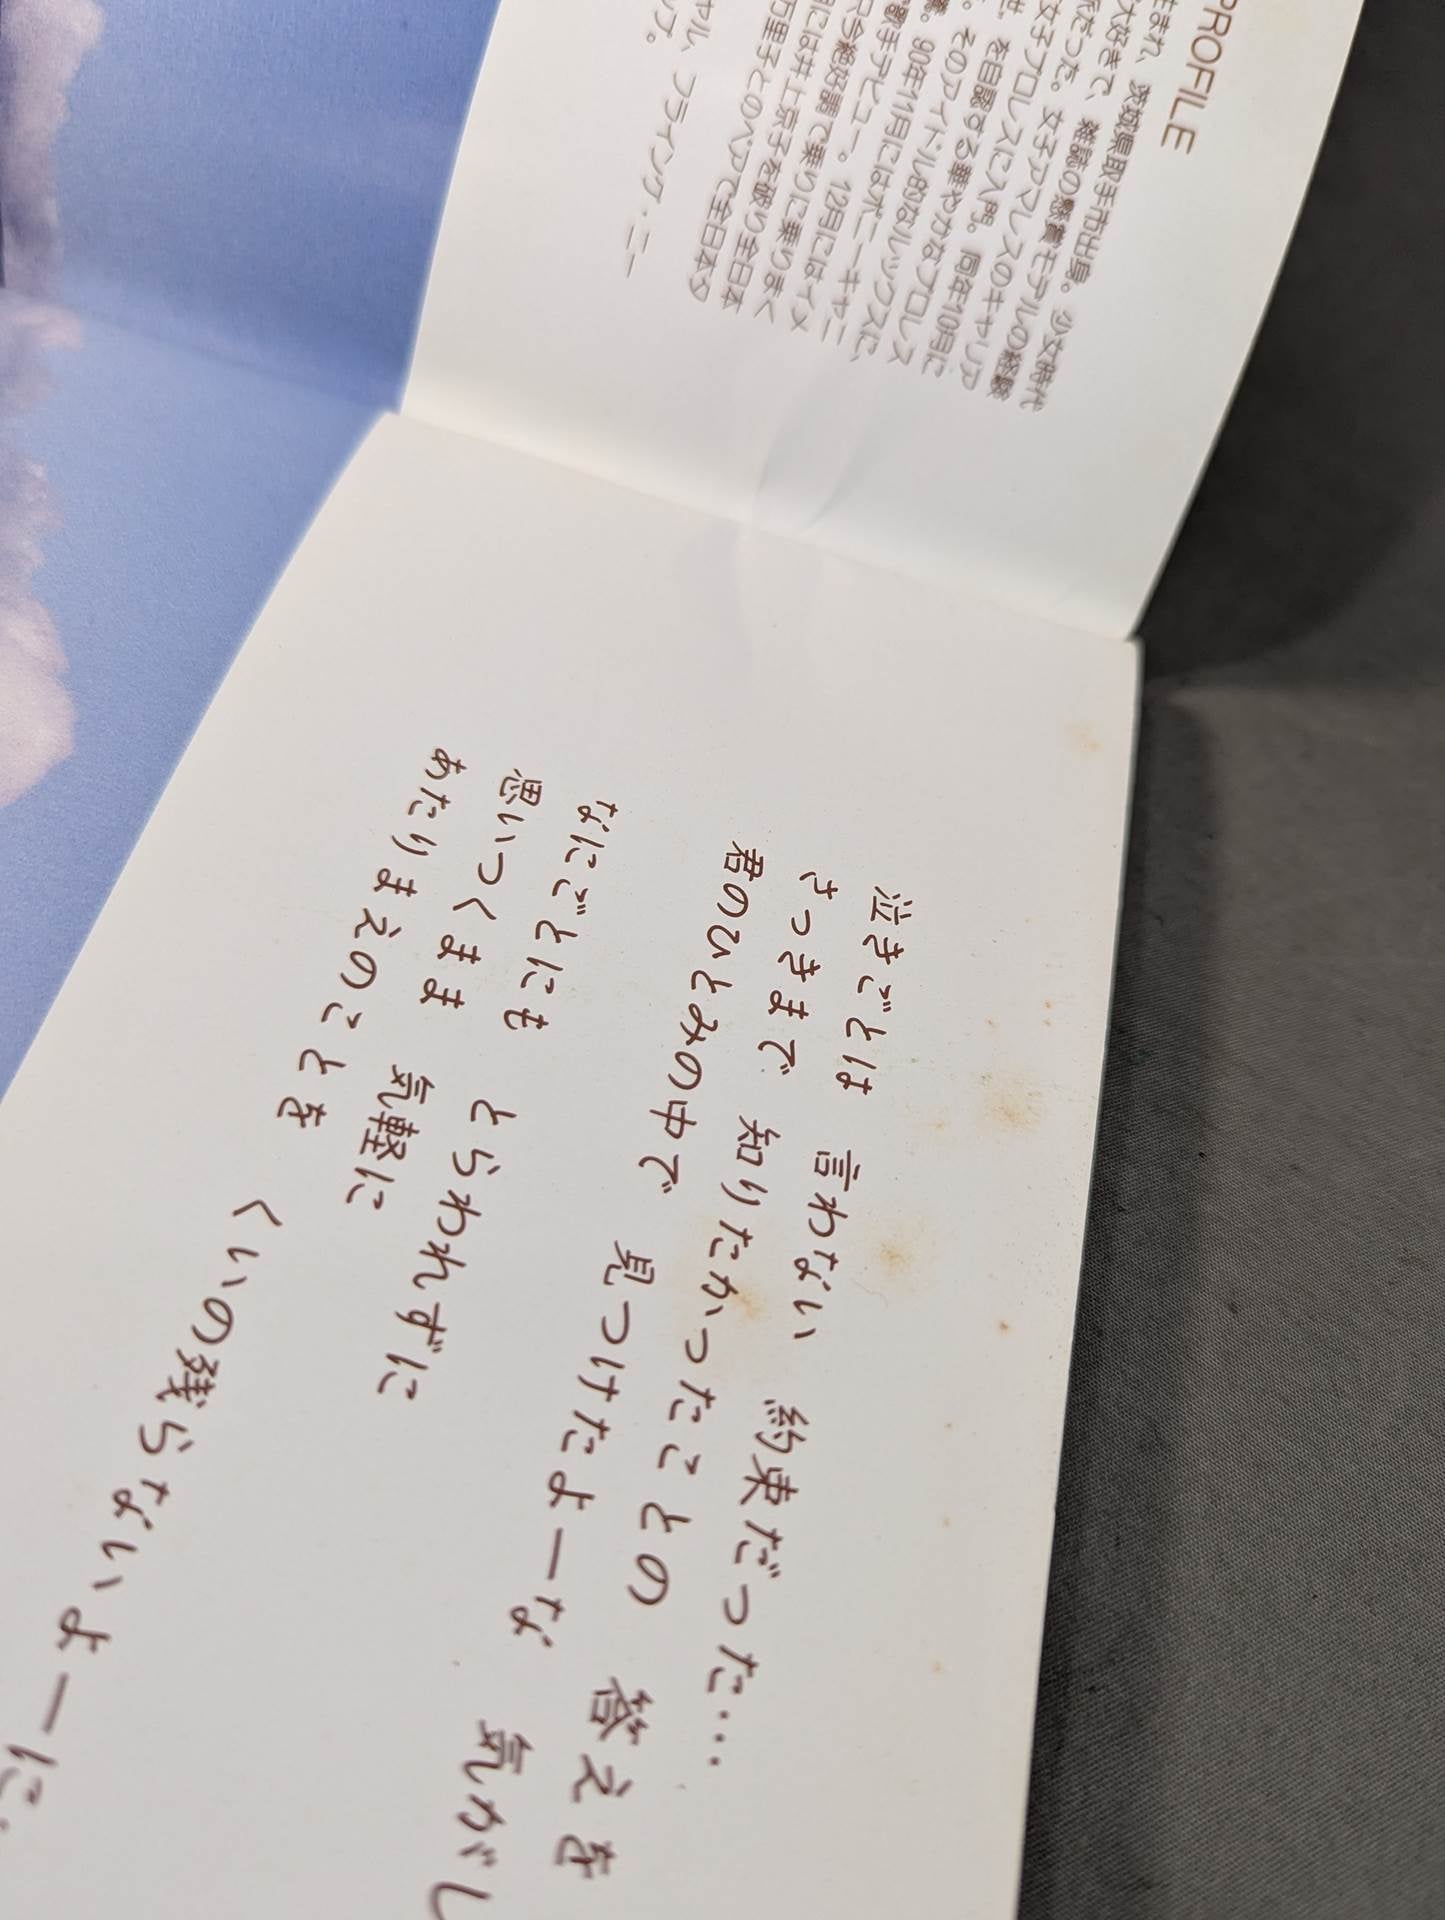 PROFILE
まれ、茨城県取手市出身。少女時代
大好きで、雑誌の懸賞モデルの経験
だった。女子アマレスのキャリア
女子プロレスに入門。同年10月に
を自認する華やかなプロレス
。そのアイドル的なルックスに、
90年11月にはポニーキャニ
歌手デビュー。12月にはイメ
只今絶好調で乗りに乗りまく
には井上京子を破り全日本
万里子とのペアで全日本タ
フライング・ニー
泣きごとは 言わない 約束だった…
さっきまで 知りたかったことの 答えを
君のひとみの中で 見つけたよーな 気がし
なにごとにも とらわれずに
思いつくまま 気軽に
あたりまえのことを くいの残らないよーに